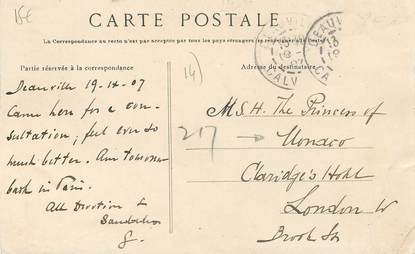 15€
CARTE POSTALE
La Correspondance au recto n'est pas acceptée par tous les pays étrangers
Partie réservée à la correspondance
Adresse du destinataire
14)
DEAUVILLE
CALV
Deauville 19-14-07
Came here for a con-
sultation; feel ever so
much better. Am tomorrow
back in Paris.
All Devotion to
217
H. The Princess of
Monaco
Claridge's Hotel
London W
Brook St